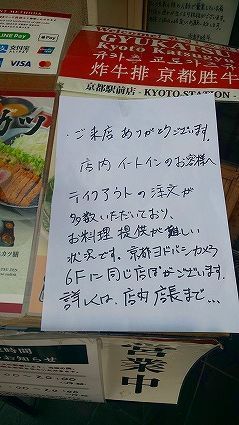 Pay
VISA
GYUKATSU
Kyoto
炸牛排 京都胜牛
京都駅前店 - KYOTO STATION -
・ご来店ありがとうございます。
店内イートインのお客様へ
テイクアウトの注文が
多数いただいており、
お料理提供が難しい
状況です。京都ヨドバシカメラ
6Fに同じ店ぽがございます。
詳しくは、店内 店長まで…
営業中